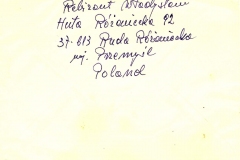 Rebizant Władysław
Huta Różaniecka 92
37-613 Ruda Różaniecka
woj. Przemyśl
Poland